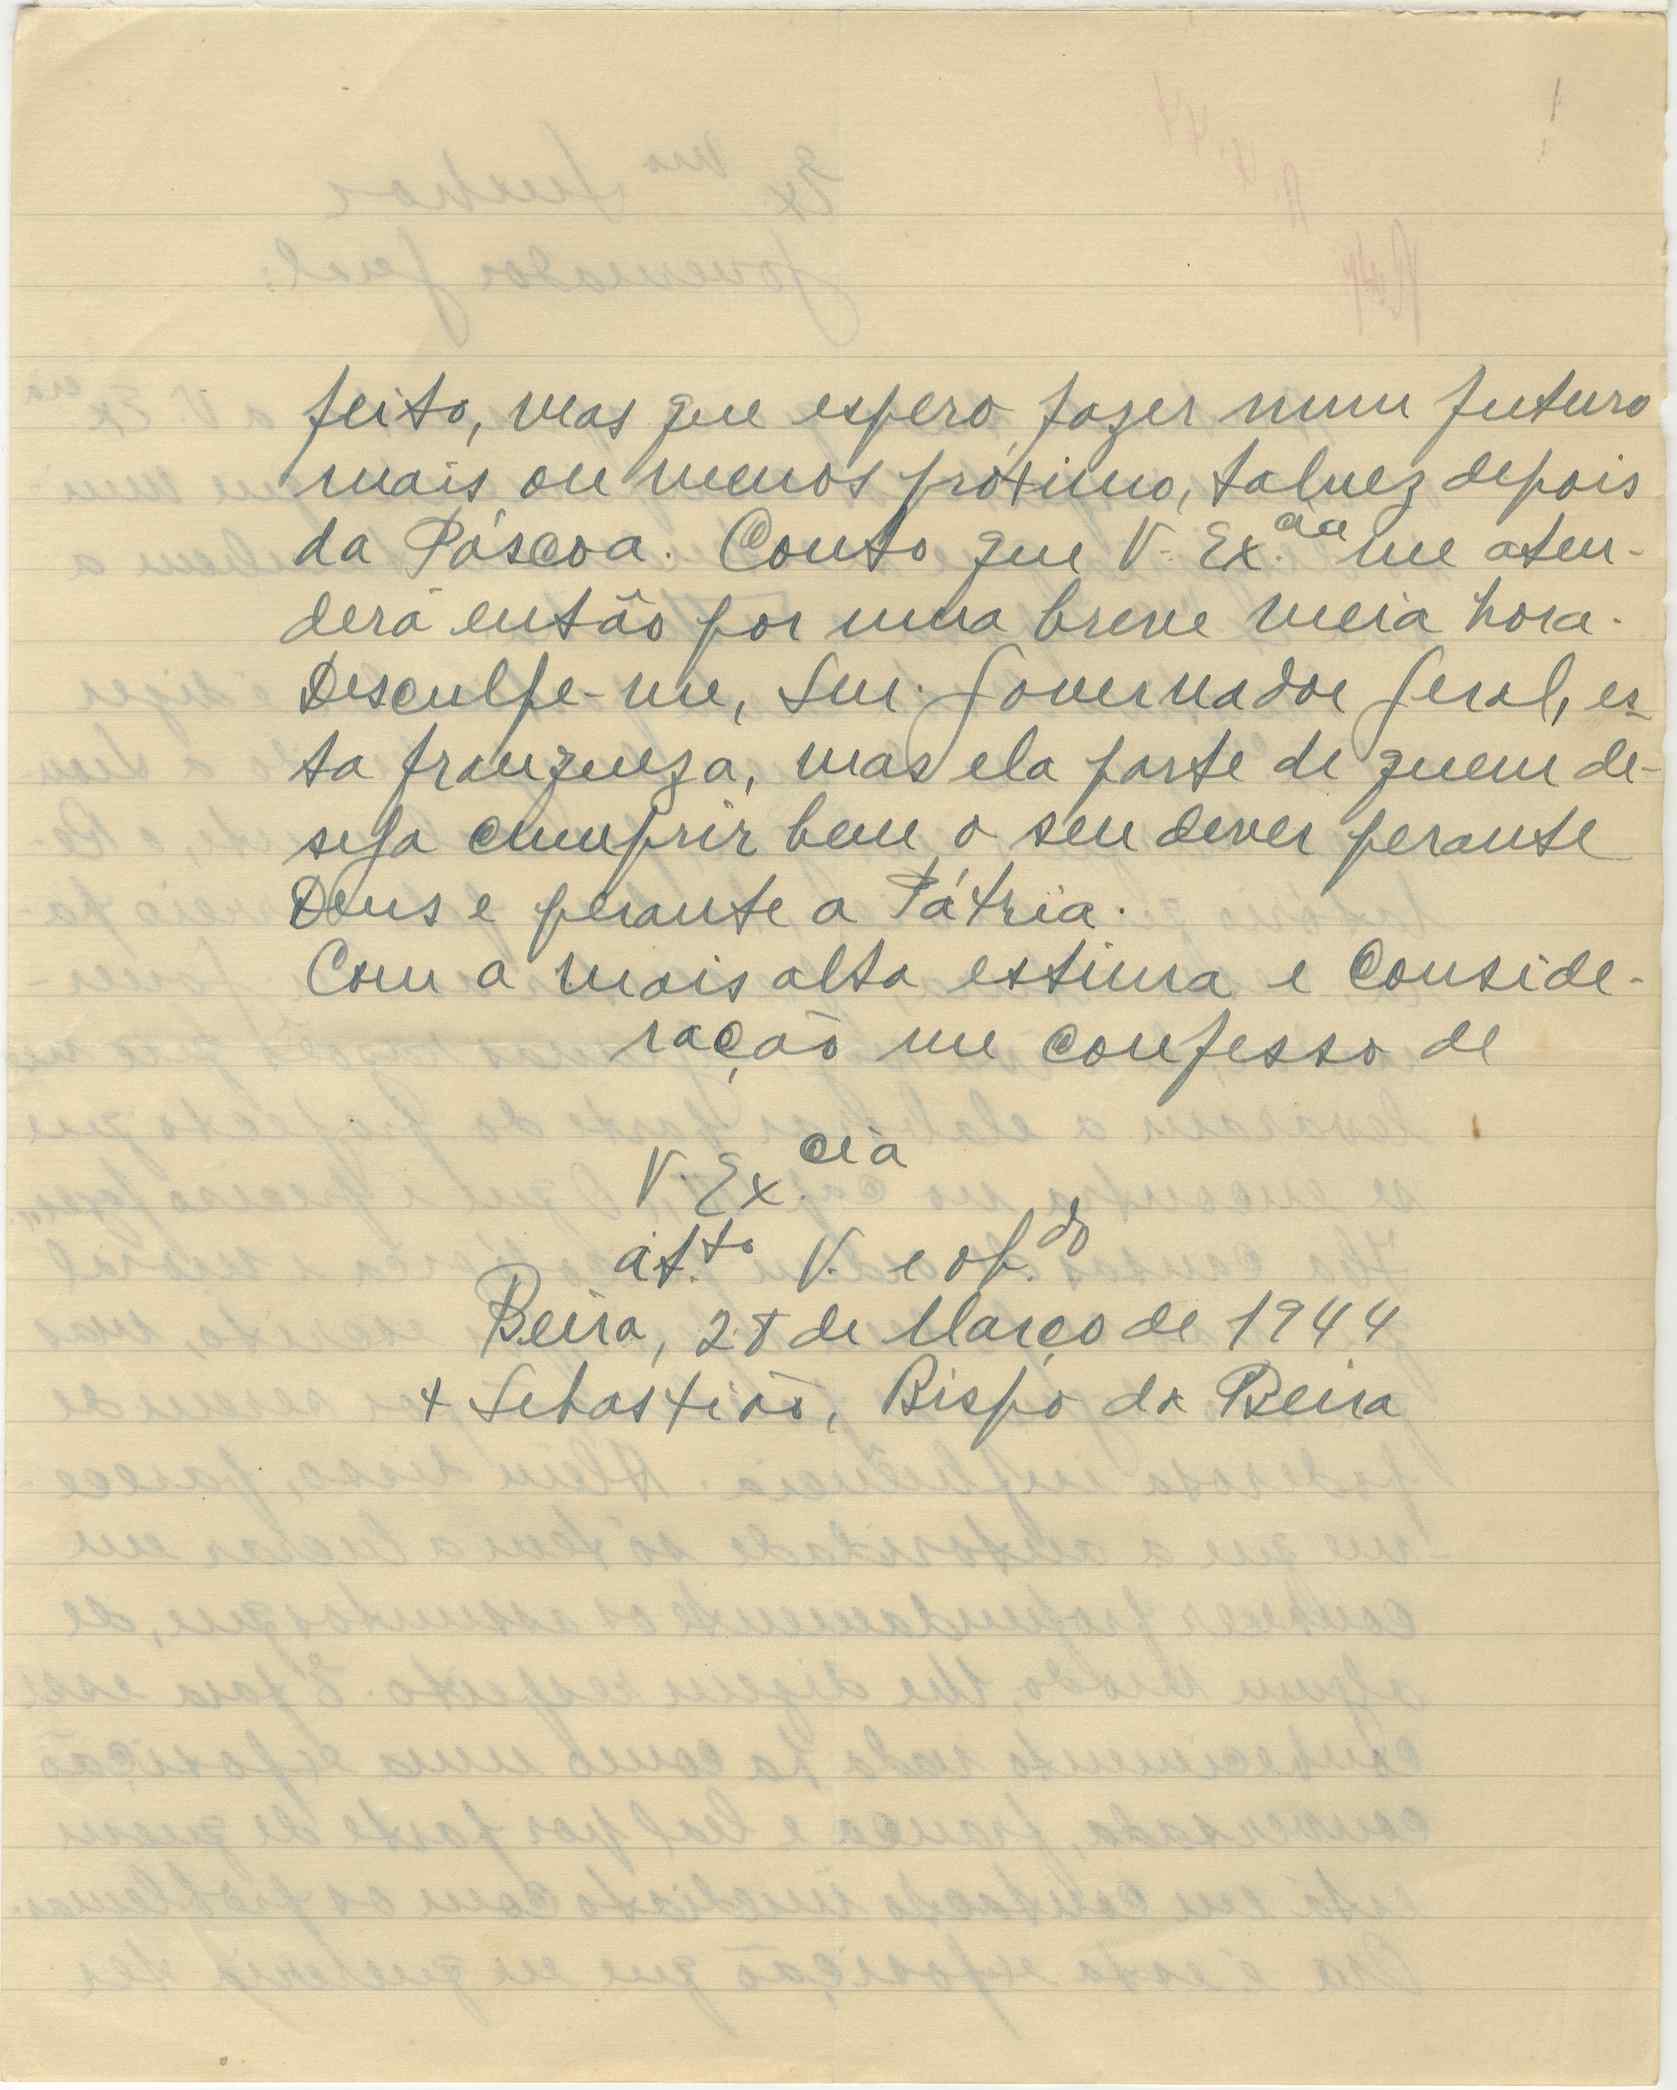 feito, mas que espero fazer num futuro
mais ou menos próximo, talvez depois
da Páscoa. Conto que V. Ex.cia me aten-
derá então por uma breve meia hora.
Desculpe-me, Snr. Governador Geral, es-
ta franqueza, mas ela parte de quem de-
seja cumprir bem o seu dever perante
Deus e perante a Pátria.
Com a mais alta estima e conside-
ração me confesso de
V. Ex.cia
at.to V. e ob.do
Beira, 28 de Março de 1944
+ Sebastião, Bispo da Beira